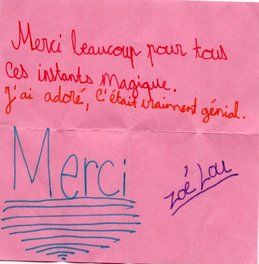 Merci beaucoup pour tous
ces instants magique.
J'ai adoré, c'était vraiment génial.
Merci
Zoé Lou